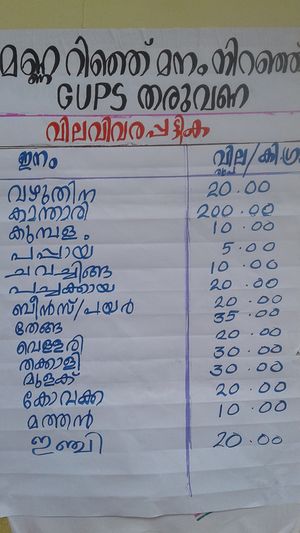 മണ്ണറിഞ്ഞ് മനംനിറഞ്ഞ്
GUPS തരുവണ
വിലവിവരപ്പട്ടിക
ഇനം വില/കി.ഗ്രാം
വഴുതിന 20.00
കാന്താരി 200.00
കുമ്പളം 10.00
പപ്പായ 5.00
ചവച്ചിങ്ങ 10.00
പച്ചക്കായ 20.00
ബീൻസ്/പയർ 20.00
തേങ്ങ 35.00
വെള്ളരി 20.00
തക്കാളി 30.00
മുളക് 30.00
കോവക്ക 20.00
മത്തൻ 10.00
ഇഞ്ചി 20.00